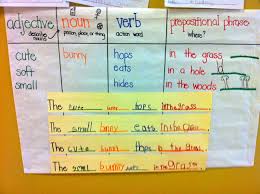 adjective noun verb prepositional phrase
person, place, or thing action word where?
cute bunny hops in the grass
soft eats in a hole
small hides in the woods
The hops in the grass.
The small bnny eats in the
The cute hops in the grass.
The small bunny eats in the grass.